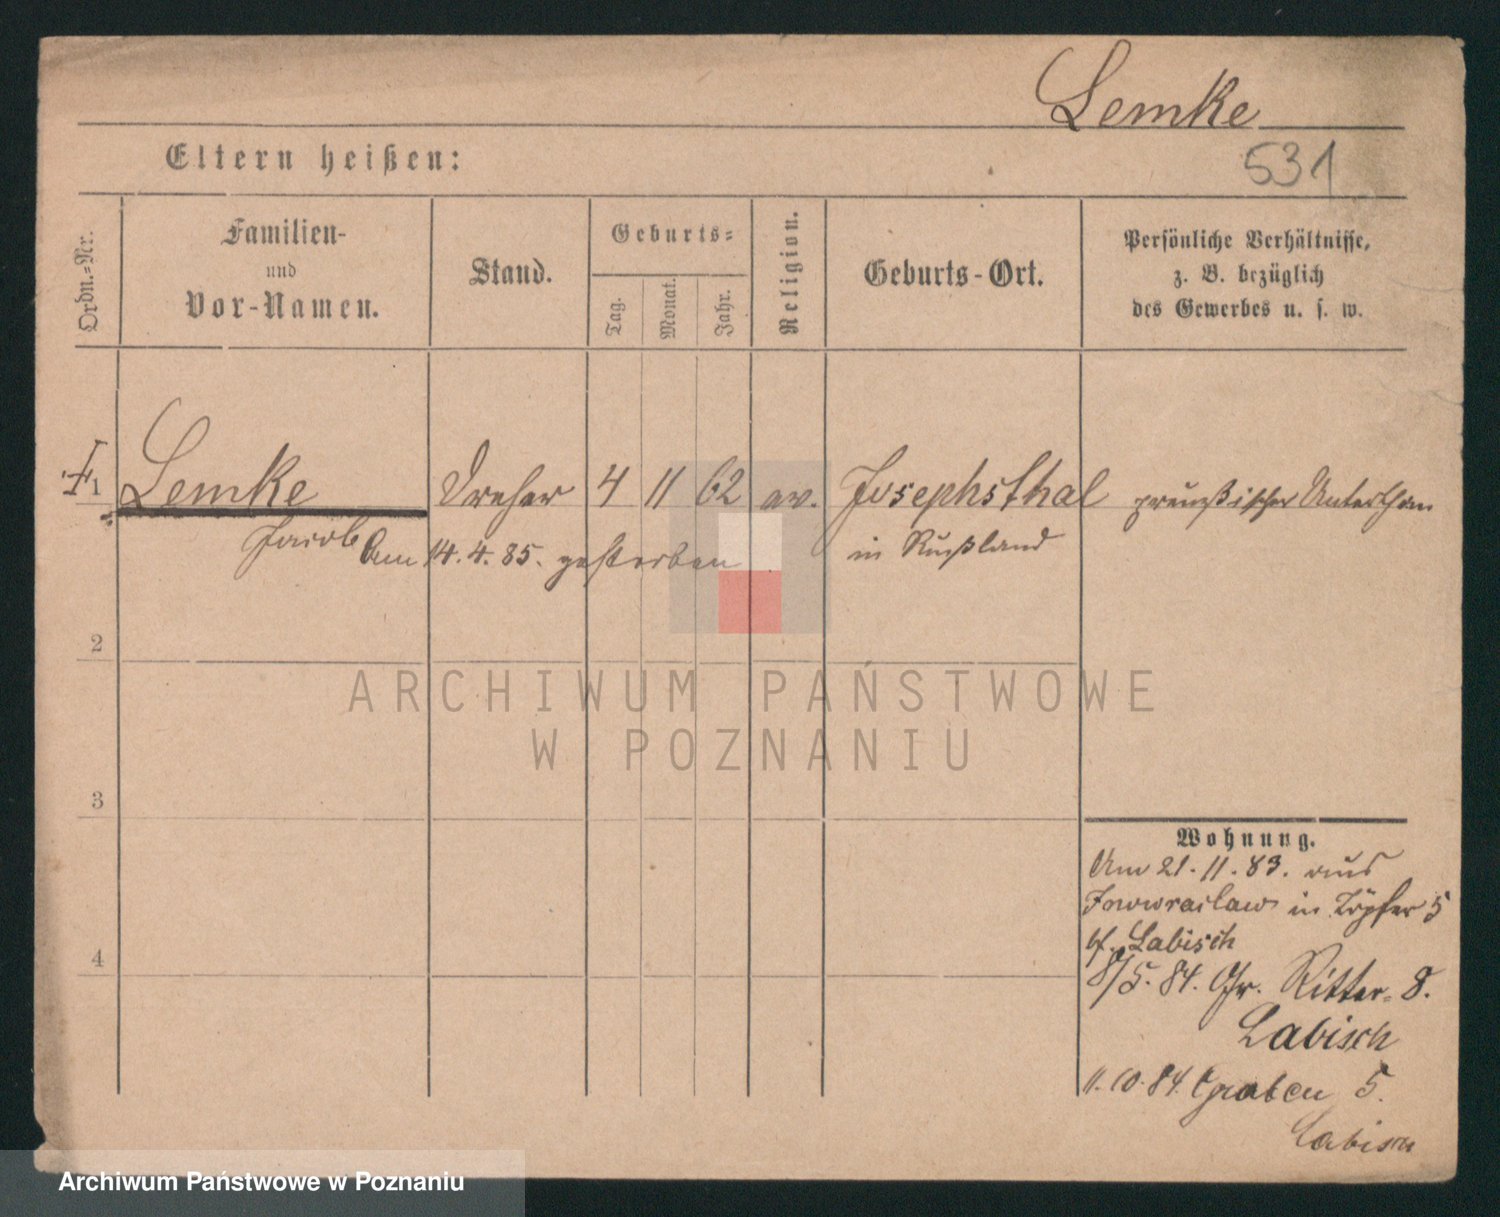 Lemke
Eltern heißen:
531
Ordn.-Nr.
Familien-
und
Vor-Namen.
Stand.
Geburts-
Tag.
Monat.
Jahr.
Religion.
Geburts-Ort.
Persönliche Verhältnisse,
z. B. bezüglich
des Gewerbes u. s. w.
1 Lemke Dreher 4 11 62 ev. Josephsthal preußischer Unterthan
Jacob Am 14.4.85. gestorben in Rußland
2
ARCHIWUM PAŃSTWOWE
W POZNANIU
3
Wohnung.
Am 21.11.83. aus
Inowraclaw in Töpfer 5
bf. Labisch
4
8/5.84. Gr. Ritter- 8.
Labisch
11.10.84. Graben 5.
Labisch
Archiwum Państwowe w Poznaniu